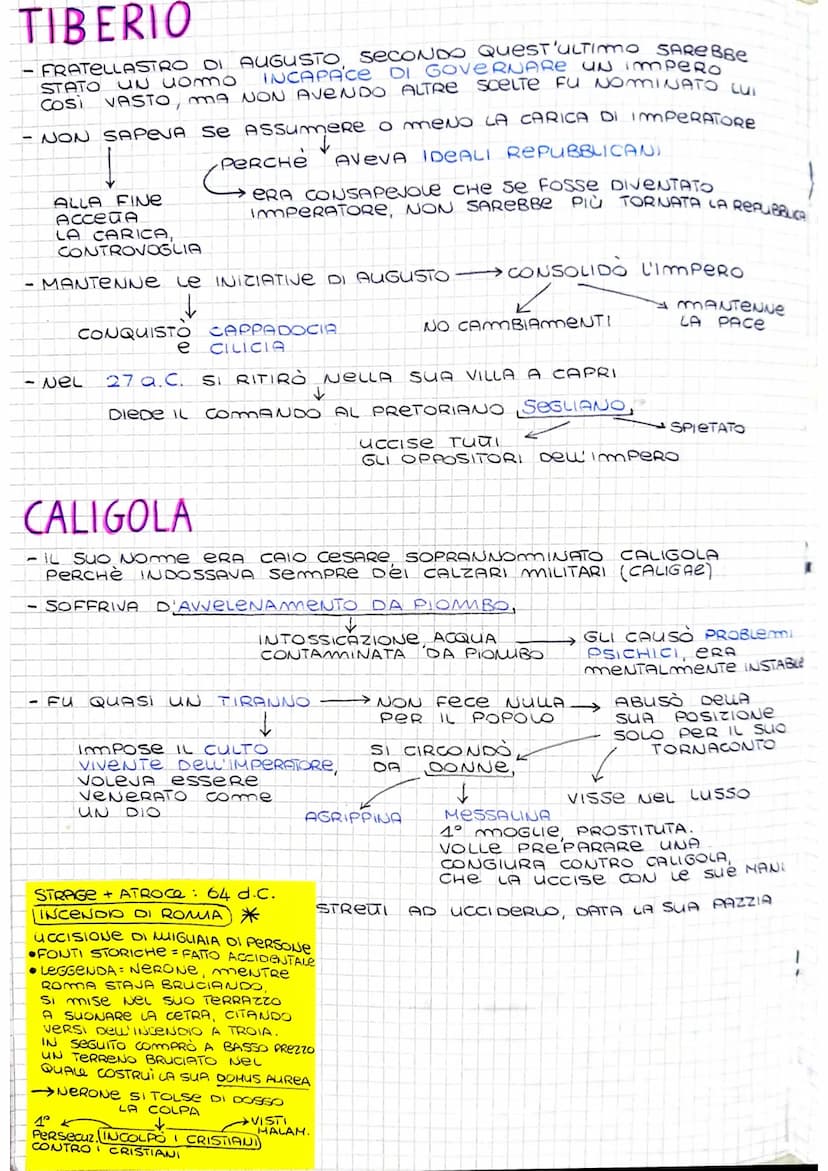 TIBERIO
- FRATELLASTRO DI AUGUSTO, SECONDO QUEST'ULTIMO SAREBBE
STATO UN UOMO INCAPACE DI GOVERNARE UN IMPERO
COSÌ VASTO, MA NON AVENDO ALTRE SCELTE FU NOMINATO LUI
- NON SAPEVA SE ASSUMERE O MENO LA CARICA DI IMPERATORE
PERCHÈ AVEVA IDEALI REPUBBLICANI
ERA CONSAPEVOLE CHE SE FOSSE DIVENTATO
IMPERATORE, NON SAREBBE PIÙ TORNATA LA REPUBBLICA
ALLA FINE
ACCETTA
LA CARICA,
CONTROVOGLIA
- MANTENNE LE INIZIATIVE DI AUGUSTO → CONSOLIDÒ L'IMPERO
CONQUISTÒ CAPPADOCIA
e CILICIA
NO CAMBIAMENTI
MANTENNE
LA PACE
- NEL 27 a.C. SI RITIRÒ NELLA SUA VILLA A CAPRI
DIEDE IL COMANDO AL PRETORIANO SEGLIANO,
SPIETATO
UCCISE TUTTI
GLI OPPOSITORI DELL'IMPERO
CALIGOLA
- IL SUO NOME ERA CAIO CESARE, SOPRANNOMINATO CALIGOLA
PERCHÈ INDOSSAVA SEMPRE DEI CALZARI MILITARI (CALIGAE)
- SOFFRIVA D'AVVELENAMENTO DA PIOMBO,
INTOSSICAZIONE, ACQUA
CONTAMINATA DA PIOMBO
→ GLI CAUSÒ PROBLEMI
PSICHICI, ERA
MENTALMENTE INSTABILE
- FU QUASI UN TIRANNO → NON FECE NULLA
PER IL POPOLO
→ ABUSÒ DELLA
SUA POSIZIONE
SOLO PER IL SUO
TORNACONTO
IMPOSE IL CULTO
VIVENTE DELL'IMPERATORE,
VOLEVA ESSERE
VENERATO COME
UN DIO
SI CIRCONDÒ
DA DONNE,
VISSE NEL LUSSO
AGRIPPINA
MESSALINA
1° MOGLIE, PROSTITUTA.
VOLLE PREPARARE UNA
CONGIURA CONTRO CALIGOLA,
CHE LA UCCISE CON LE SUE MANI
STRETTI AD UCCIDERLO, DATA LA SUA PAZZIA
STRAGE + ATROCE : 64 d.C.
INCENDIO DI ROMA *
UCCISIONE DI MIGLIAIA DI PERSONE
• FONTI STORICHE = FATTO ACCIDENTALE
• LEGGENDA = NERONE, MENTRE
ROMA STAVA BRUCIANDO,
SI MISE NEL SUO TERRAZZO
A SUONARE LA CETRA, CITANDO
VERSI DELL'INCENDIO A TROIA.
IN SEGUITO COMPRÒ A BASSO PREZZO
UN TERRENO BRUCIATO NEL
QUALE COSTRUÌ LA SUA DOMUS AUREA
→ NERONE SI TOLSE DI DOSSO
LA COLPA
INCOLPÒ I CRISTIANI
→ VISTI
MALAM.
1°
PERSECUZ.
CONTRO I CRISTIANI